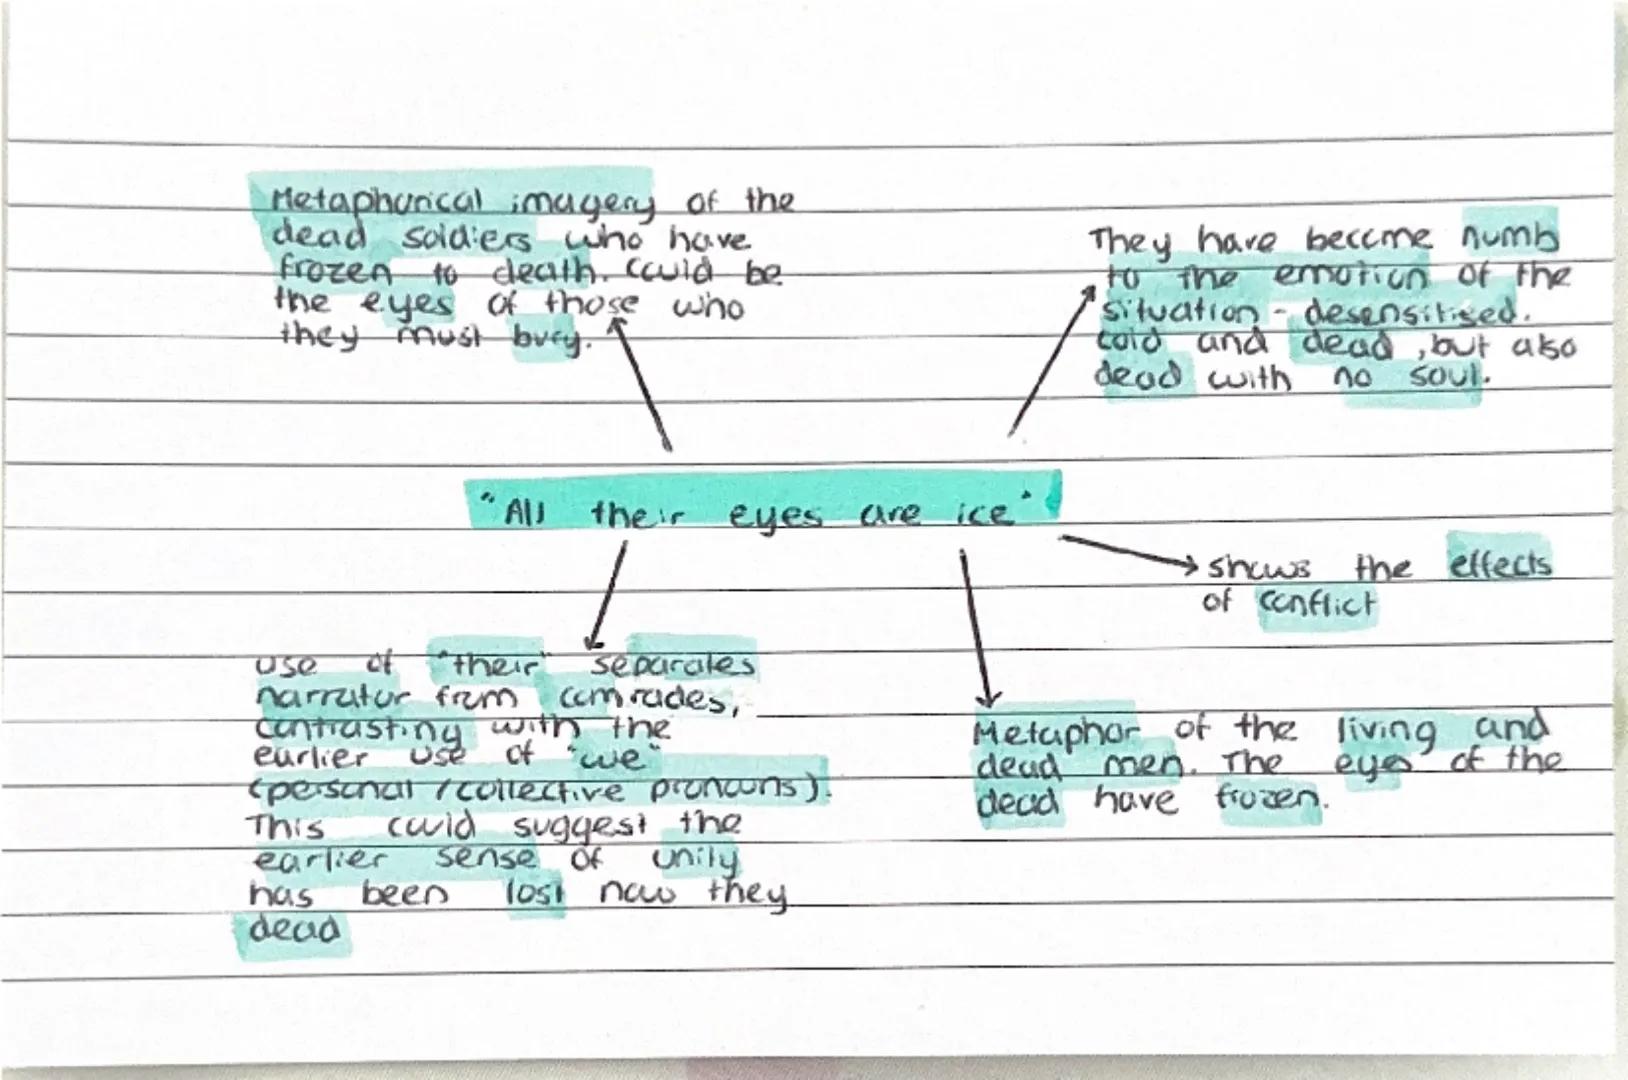 Metaphorical imagery of the
dead soldiers who have
frozen to death. Could be
the eyes of those who
they must bury.
They have become numb
to the emotion of the
situation - desensitised.
cold and dead, but also
dead with no soul.
"All their eyes are ice"
shows the effects
of conflict
use of "their" separates
narrator from comrades,
contrasting with the
earlier use of "we"
(personal / collective pronouns).
This could suggest the
earlier sense of unity
has been lost now they
dead
Metaphor of the living and
dead men. The eyes of the
dead have frozen.